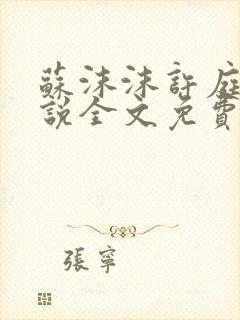 蘇沫沫許庭
説全文免費
張寧